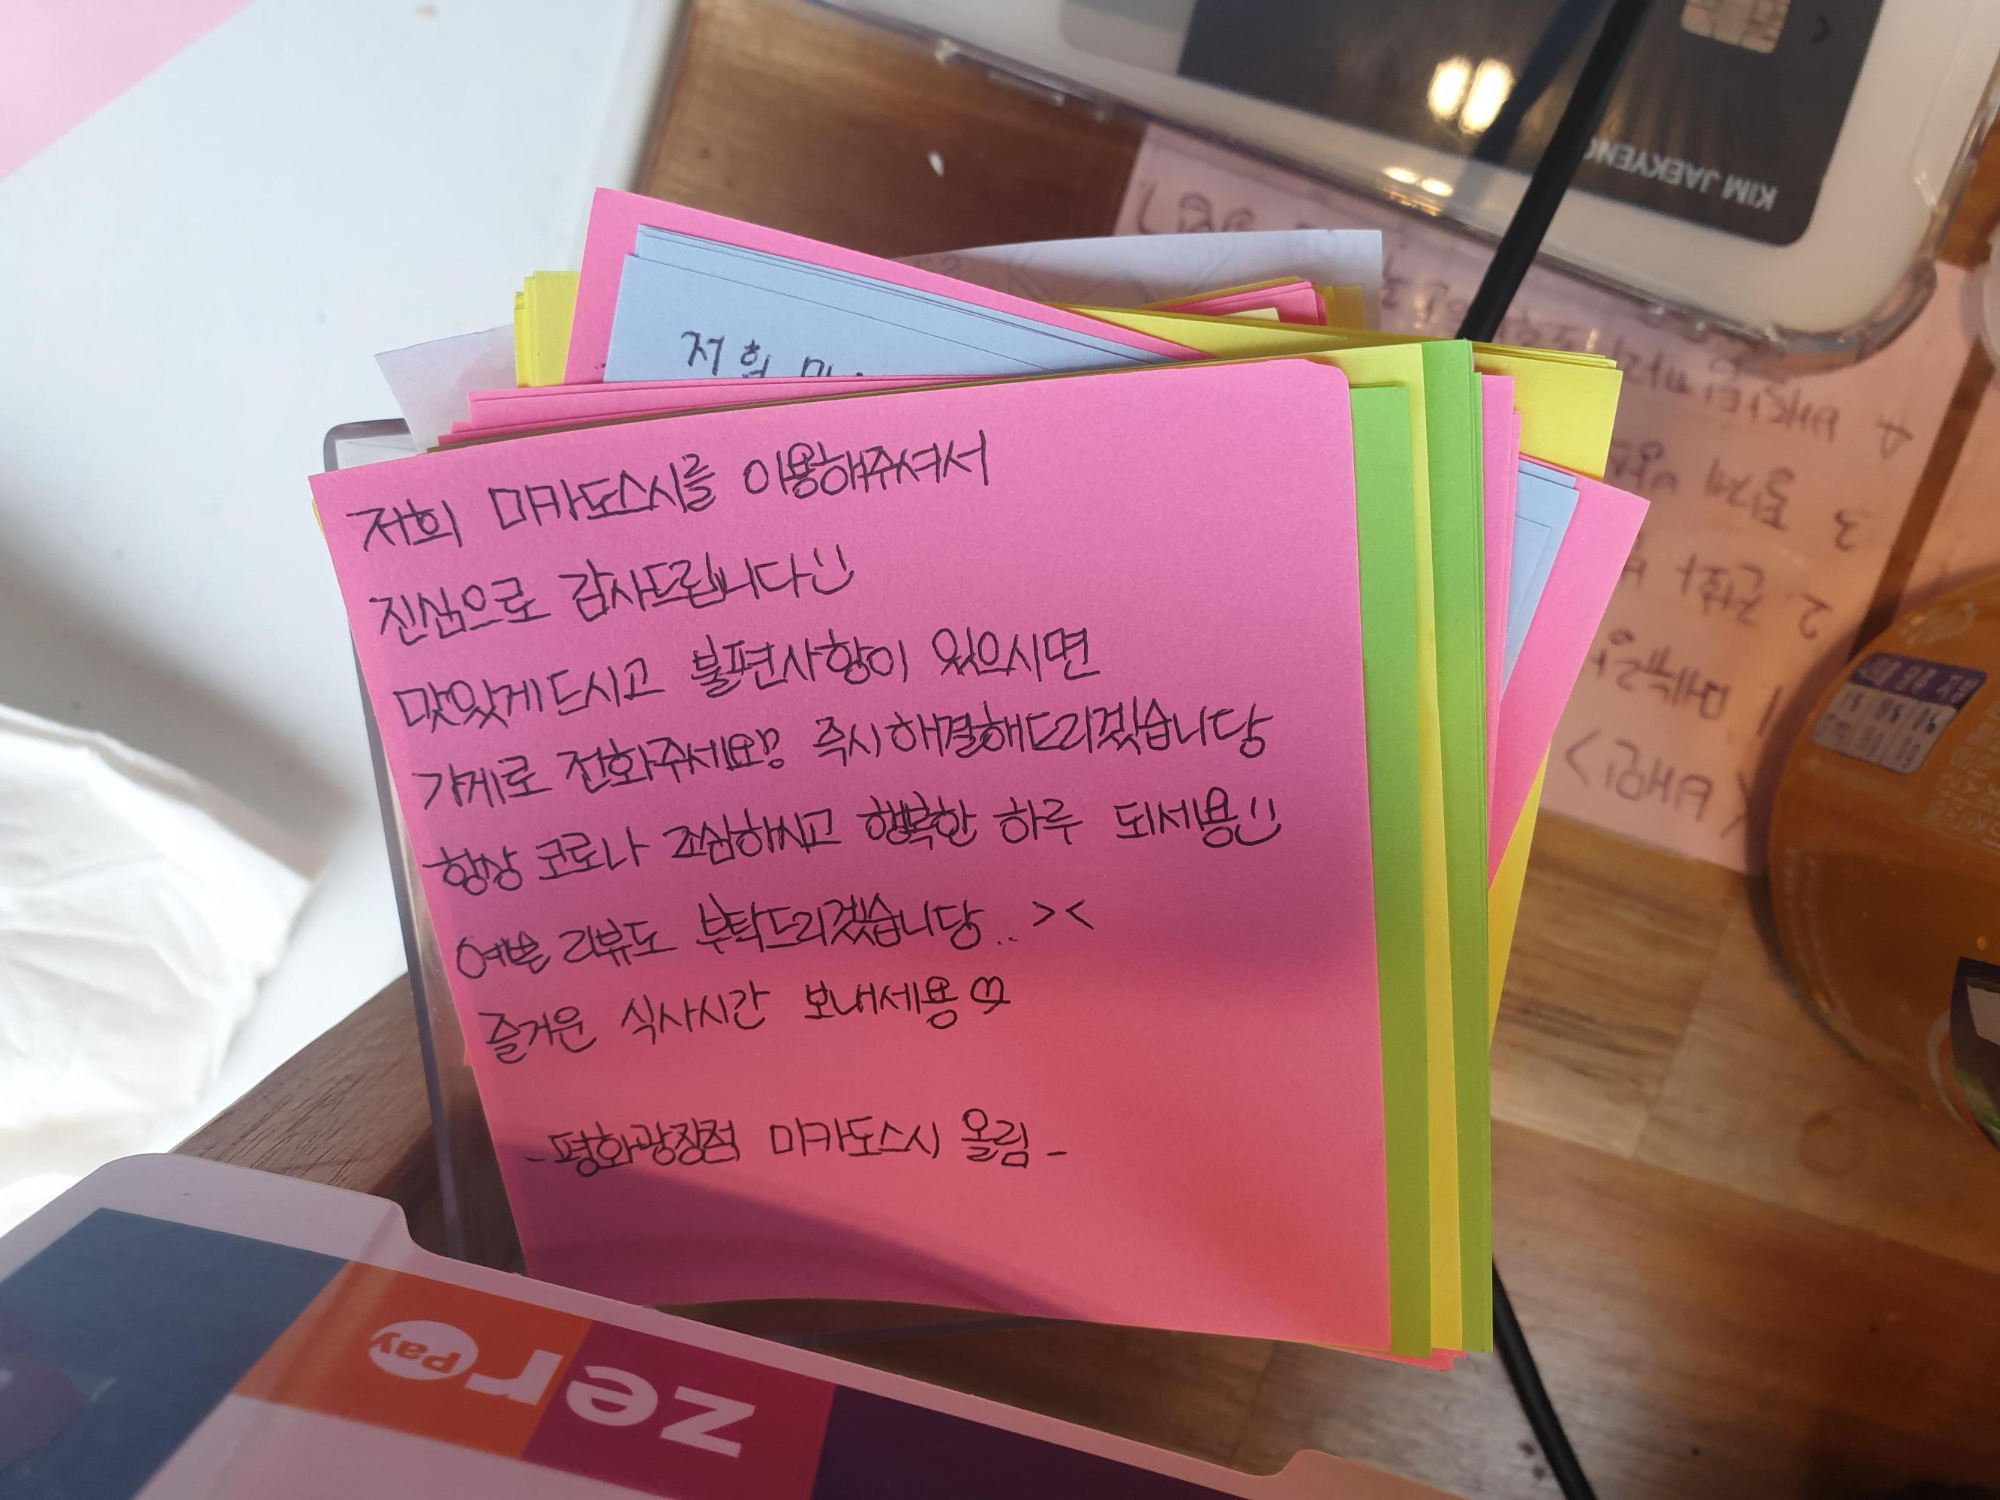 저희 미카도스시를 이용해주셔서
진심으로 감사드립니다:)
맛있게드시고 불편사항이 있으시면
가게로 전화주세요!! 즉시해결해드리겠습니당
항상 코로나 조심하시고 행복한 하루 되세용:)
예쁜 리뷰도 부탁드리겠습니당.. ><
즐거운 식사시간 보내세용♡
- 평화광장점 미카도스시 올림 -
저희
KIM JAEKYENG
4
3
2. 국화
1
<매핑>
zero
Pay